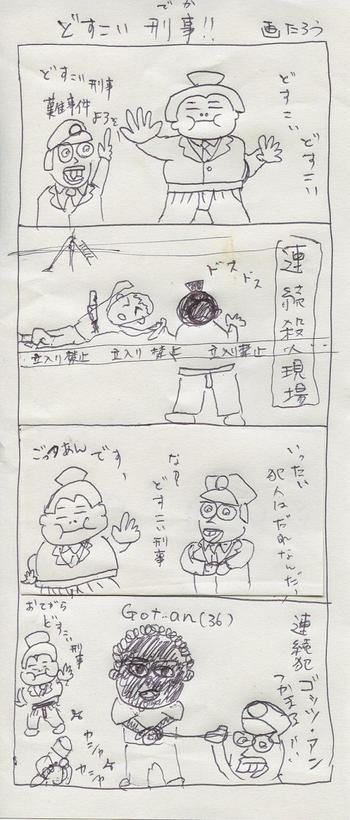 でか
どすこい 刑事!!
画 たろう
どすこい
どすこい
どすこい刑事
難事件
連続殺人現場
ドス
ドス
立入り禁止 立入り禁止 立入り禁止
いったい
犯人はだれなんだ!
な?
どすこい刑事
ごっつあん です!
連続犯
ゴッツ・アン
つかまる!!
Got-an(36)
おてがら
どすこい刑事
カシャ
カシャ